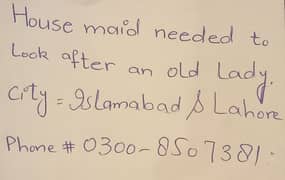 House maid needed to
Look after an old Lady.
City = Islamabad & Lahore
Phone # 0300-8507381.